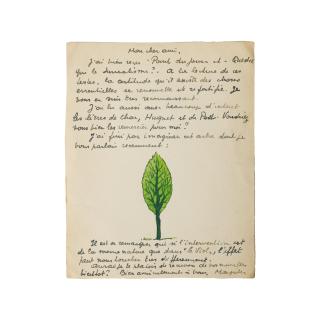 Mon cher ami,
J'ai bien reçu
que le surréalisme?". A la lecture de ces
textes, la certitude qu'il existe des choses
essentielles se renouvelle et se fortifie. Je
vous en suis très reconnaissant.
J'ai lu aussi avec beaucoup d'intérêt
les livres de Char, Hugnet et de
vous bien les remercier pour moi?
J'ai fini par imaginer cet arbre dont je
vous parlais récemment :
Il est à remarquer que si l'intervention est
de la même nature que dans "le Viol", l'effet
peut nous toucher très différemment.
Aurai-je le plaisir de recevoir de vos nouvelles
bientôt? Bien amicalement à vous Magritte